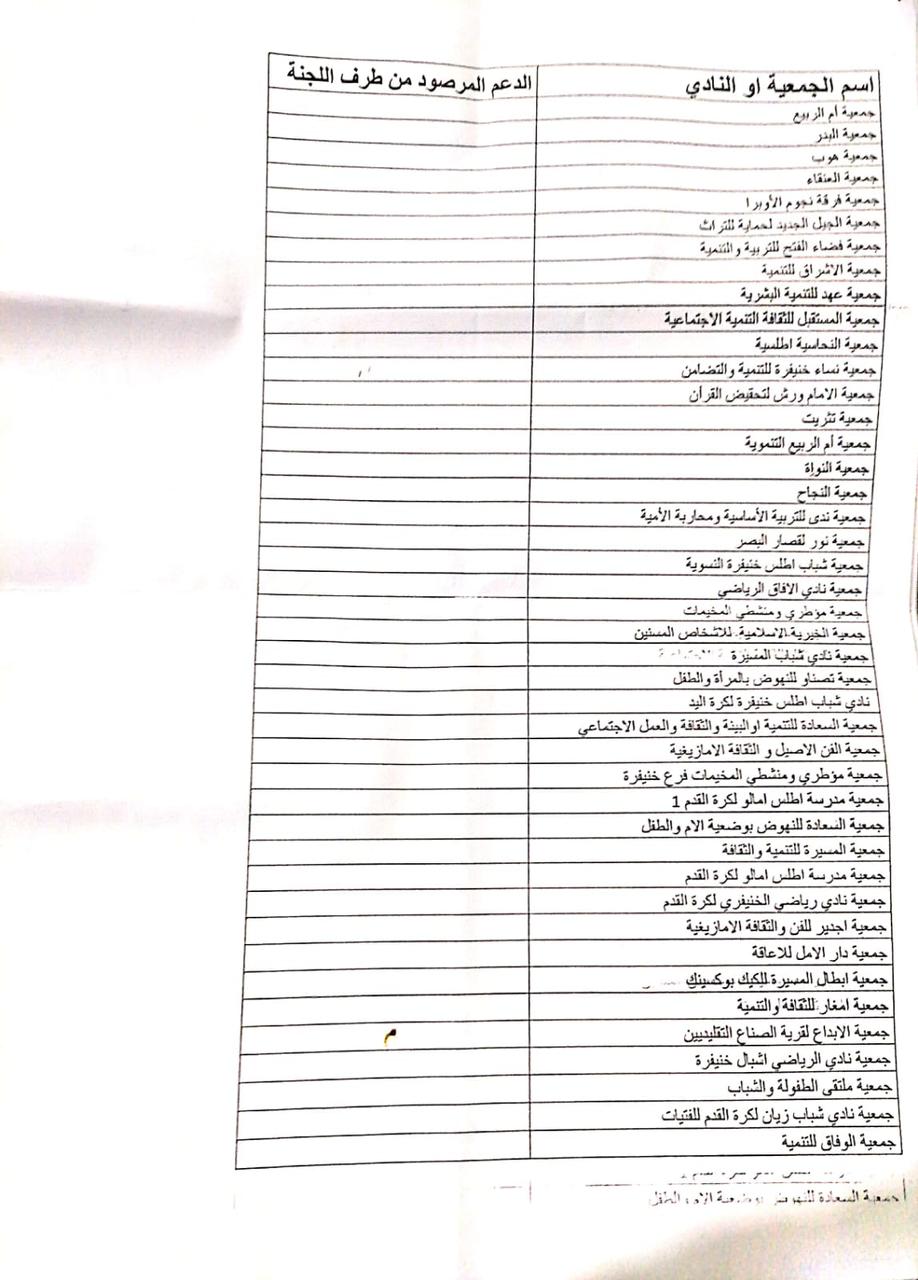 اسم الجمعية او النادي الدعم المرصود من طرف اللجنة
جمعية أم الربيع
جمعية البدر
جمعية هوب
جمعية العنقاء
جمعية فرقة نجوم الأوبرا
جمعية الجيل الجديد لحماية للتراث
جمعية فضاء الفتح للتربية والتنمية
جمعية الاشراق للتنمية
جمعية عهد للتنمية البشرية
جمعية المستقبل للثقافة التنمية الاجتماعية
جمعية النحاسية اطلسية
جمعية نساء خنيفرة للتنمية والتضامن
جمعية الامام ورش لتحفيض القرأن
جمعية تثريت
جمعية أم الربيع التنموية
جمعية النواة
جمعية النجاح
جمعية ندى للتربية الأساسية ومحاربة الأمية
جمعية نور لقصار البصر
جمعية شباب اطلس خنيفرة النسوية
جمعية نادي الافاق الرياضي
جمعية مؤطري ومنشطي المخيمات
جمعية الخيرية الاسلامية للاشخاص المسنين
جمعية نادي شباب المسيرة
جمعية تصناو للنهوض بالمرأة والطفل
نادي شباب اطلس خنيفرة لكرة اليد
جمعية السعادة للتنمية اوالبيئة والثقافة والعمل الاجتماعي
جمعية الفن الاصيل و الثقافة الامازيغية
جمعية مؤطري ومنشطي المخيمات فرع خنيفرة
جمعية مدرسة اطلس امالو لكرة القدم 1
جمعية السعادة للنهوض بوضعية الام والطفل
جمعية المسيرة للتنمية والثقافة
جمعية مدرسة اطلس امالو لكرة القدم
جمعية نادي رياضي الخنيفري لكرة القدم
جمعية اجدير للفن والثقافة الامازيغية
جمعية دار الامل للاعاقة
جمعية ابطال المسيرة للكيك بوكسينك
جمعية امغار للثقافة والتنمية
جمعية الابداع لقرية الصناع التقليديين
جمعية نادي الرياضي اشبال خنيفرة
جمعية ملتقى الطفولة والشباب
جمعية نادي شباب زيان لكرة القدم للفتيات
جمعية الوفاق للتنمية
جمعية السعادة للنهوض بوضعية الام والطفل